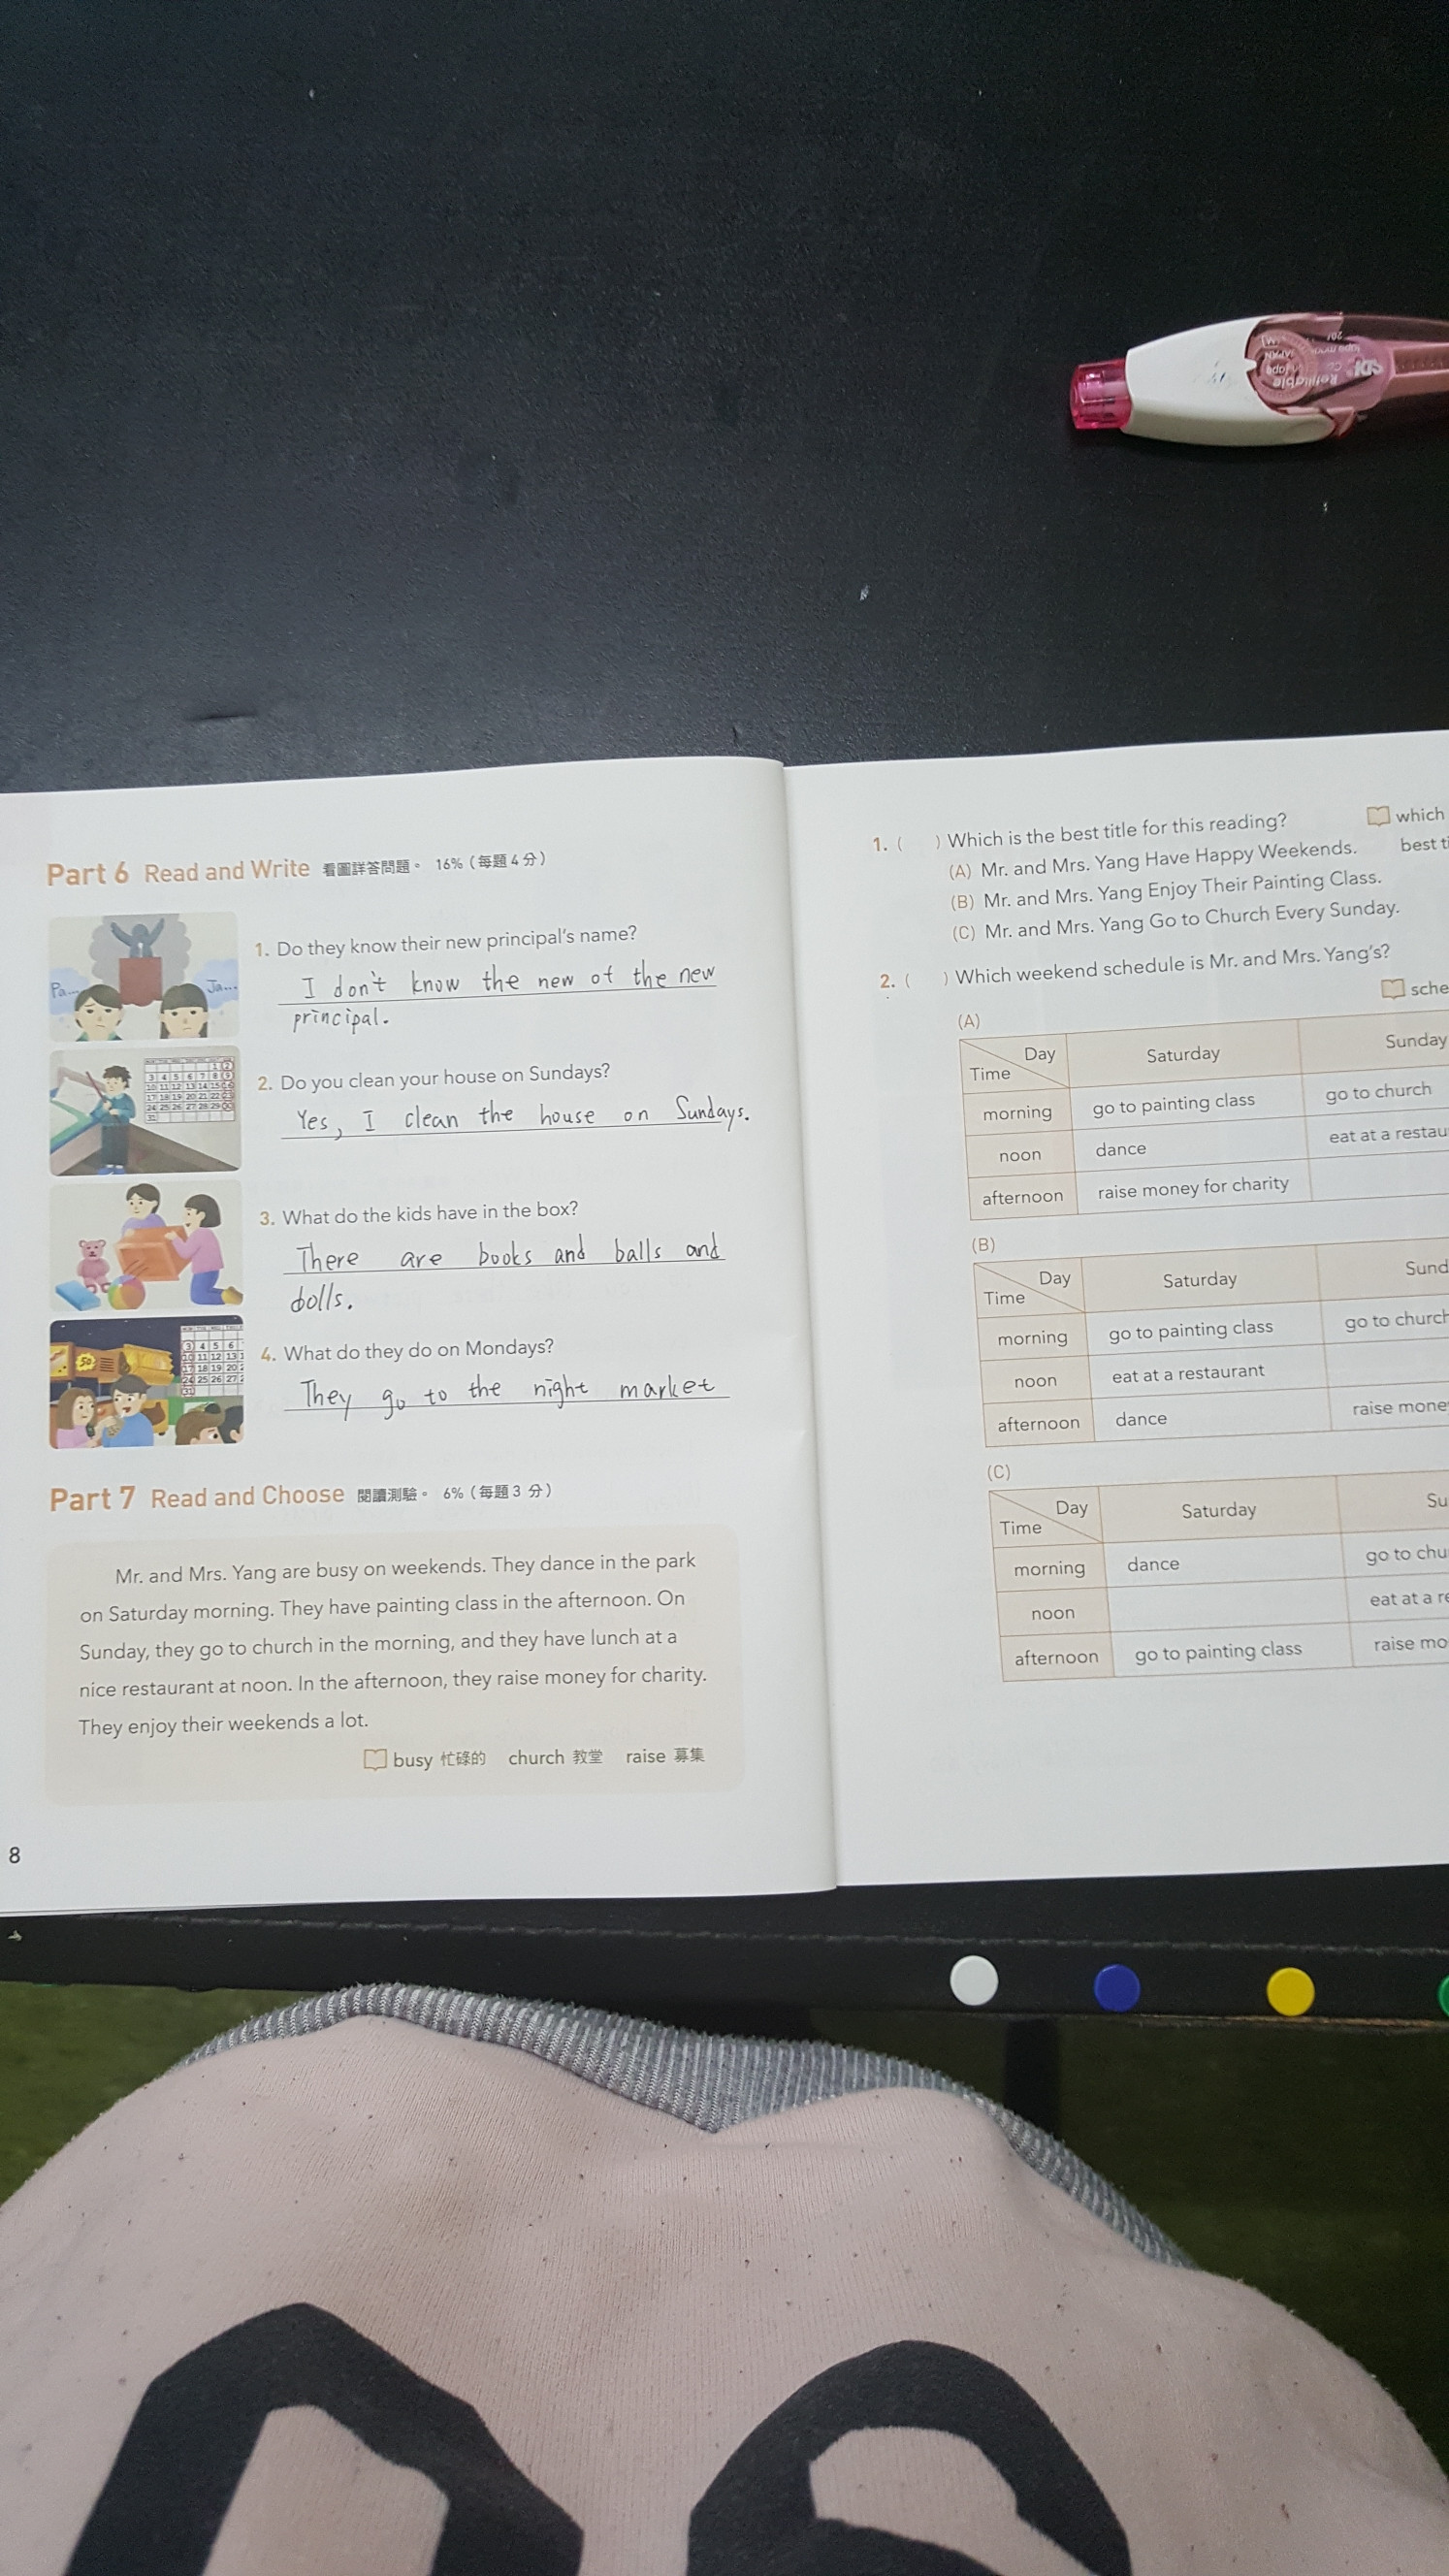 Part 6 Read and Write 看圖詳答問題。 16%(每題4分)
Pa...
Ja...
1. Do they know their new principal's name?
I don't know the new of the new
principal.
2. Do you clean your house on Sundays?
Yes, I clean the house on Sundays.
3. What do the kids have in the box?
There are books and balls and
dolls.
4. What do they do on Mondays?
They go to the night market
Part 7 Read and Choose 閱讀測驗。 6%(每題3 分)
Mr. and Mrs. Yang are busy on weekends. They dance in the park
on Saturday morning. They have painting class in the afternoon. On
Sunday, they go to church in the morning, and they have lunch at a
nice restaurant at noon. In the afternoon, they raise money for charity.
They enjoy their weekends a lot.
busy 忙碌的 church 教堂 raise 募集
8
1. ( ) Which is the best title for this reading? which
(A) Mr. and Mrs. Yang Have Happy Weekends. best ti
(B) Mr. and Mrs. Yang Enjoy Their Painting Class.
(C) Mr. and Mrs. Yang Go to Church Every Sunday.
2. ( ) Which weekend schedule is Mr. and Mrs. Yang's?
sche
(A)
Day Saturday Sunday
Time
morning go to painting class go to church
noon dance eat at a restau
afternoon raise money for charity
(B)
Day Saturday Sund
Time
morning go to painting class go to church
noon eat at a restaurant
afternoon dance raise mone
(C)
Day Saturday Su
Time
morning dance go to chu
noon eat at a re
afternoon go to painting class raise mo
SDI
Refillable